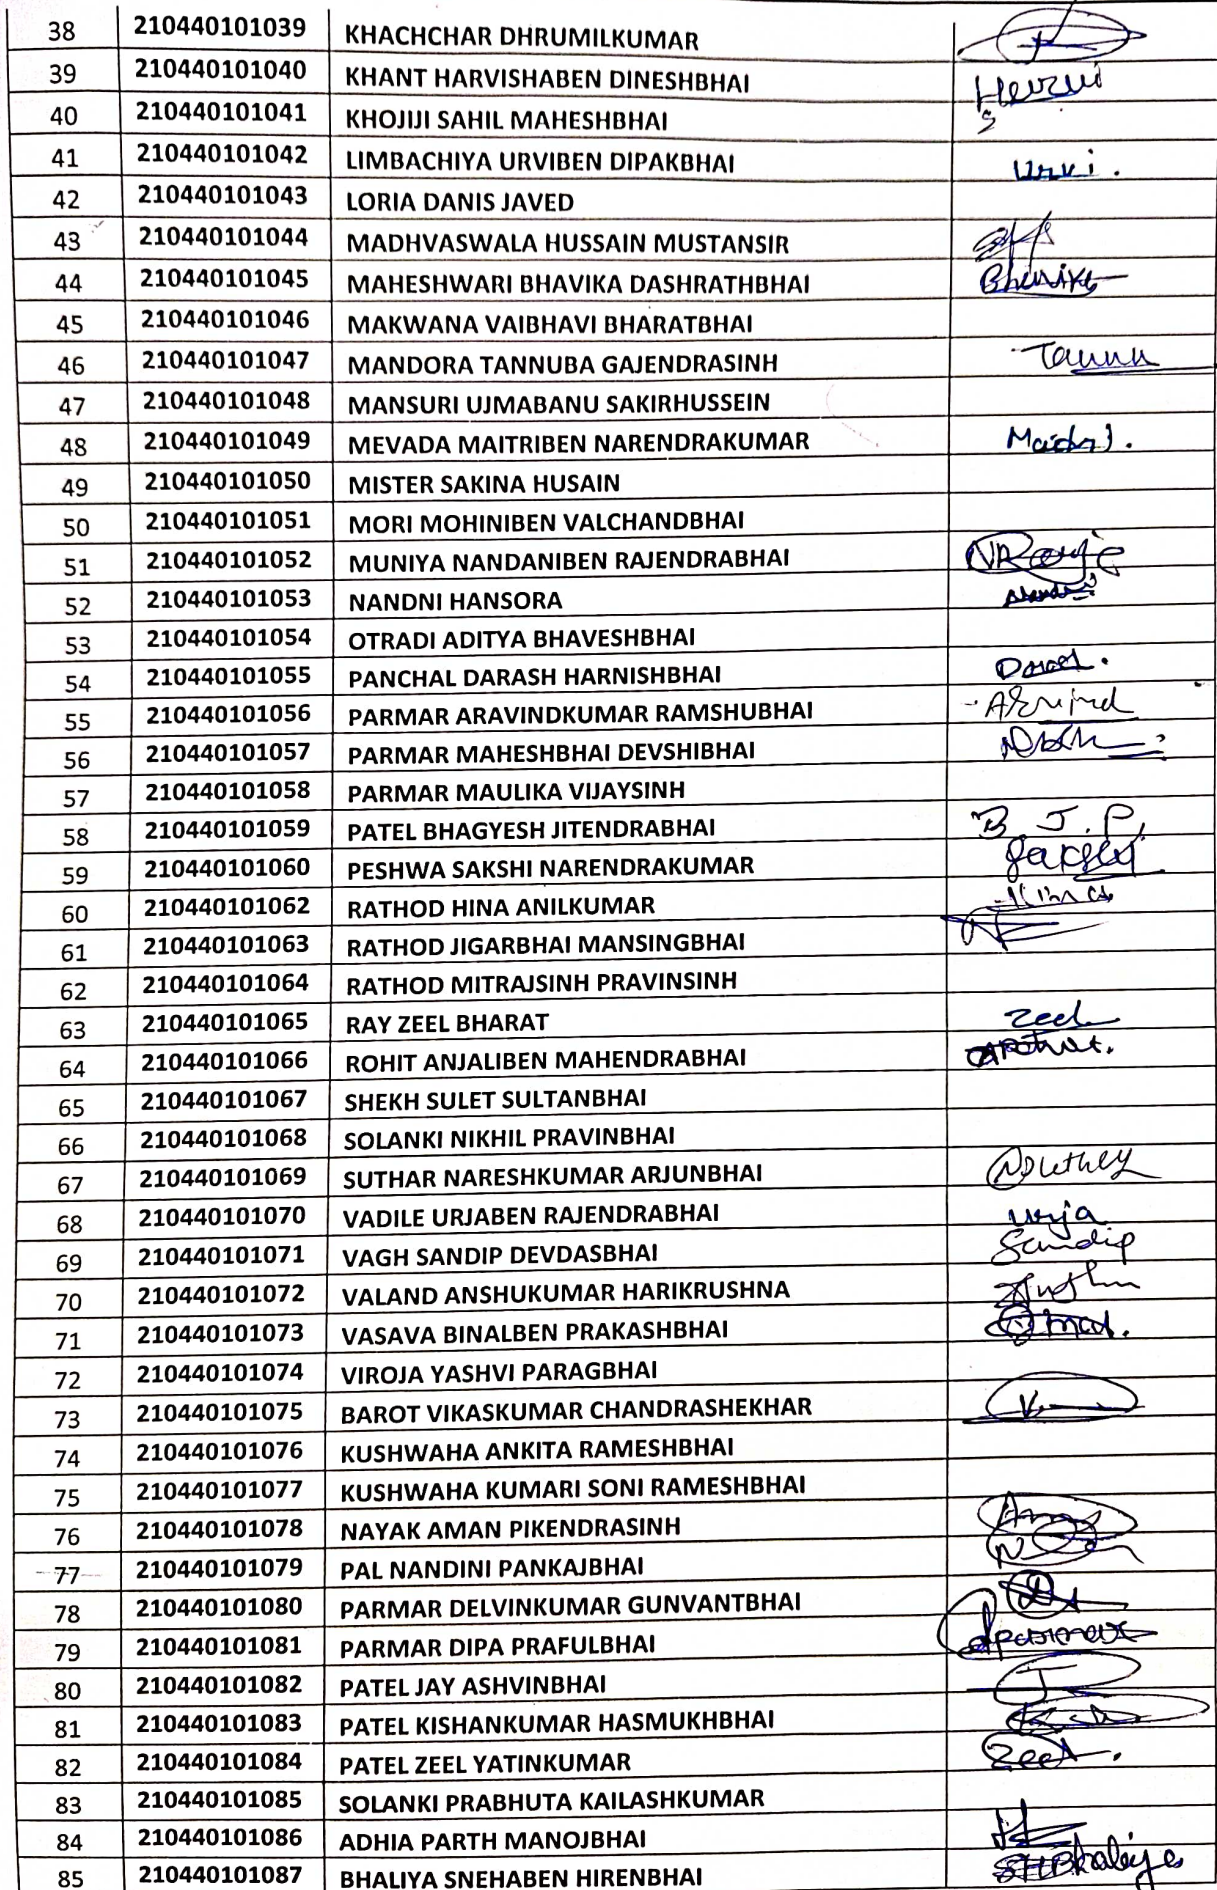 38 210440101039 KHACHCHAR DHRUMILKUMAR
39 210440101040 KHANT HARVISHABEN DINESHBHAI
40 210440101041 KHOJIJI SAHIL MAHESHBHAI
41 210440101042 LIMBACHIYA URVIBEN DIPAKBHAI Urvi.
42 210440101043 LORIA DANIS JAVED
43 210440101044 MADHVASWALA HUSSAIN MUSTANSIR
44 210440101045 MAHESHWARI BHAVIKA DASHRATHBHAI Bhavika
45 210440101046 MAKWANA VAIBHAVI BHARATBHAI
46 210440101047 MANDORA TANNUBA GAJENDRASINH Tannu
47 210440101048 MANSURI UJMABANU SAKIRHUSSEIN
48 210440101049 MEVADA MAITRIBEN NARENDRAKUMAR
49 210440101050 MISTER SAKINA HUSAIN
50 210440101051 MORI MOHINIBEN VALCHANDBHAI
51 210440101052 MUNIYA NANDANIBEN RAJENDRABHAI
52 210440101053 NANDNI HANSORA
53 210440101054 OTRADI ADITYA BHAVESHBHAI
54 210440101055 PANCHAL DARASH HARNISHBHAI
55 210440101056 PARMAR ARAVINDKUMAR RAMSHUBHAI
56 210440101057 PARMAR MAHESHBHAI DEVSHIBHAI
57 210440101058 PARMAR MAULIKA VIJAYSINH
58 210440101059 PATEL BHAGYESH JITENDRABHAI B. J. P.
59 210440101060 PESHWA SAKSHI NARENDRAKUMAR Sakshi
60 210440101062 RATHOD HINA ANILKUMAR Hina
61 210440101063 RATHOD JIGARBHAI MANSINGBHAI
62 210440101064 RATHOD MITRAJSINH PRAVINSINH
63 210440101065 RAY ZEEL BHARAT Zeel
64 210440101066 ROHIT ANJALIBEN MAHENDRABHAI
65 210440101067 SHEKH SULET SULTANBHAI
66 210440101068 SOLANKI NIKHIL PRAVINBHAI
67 210440101069 SUTHAR NARESHKUMAR ARJUNBHAI
68 210440101070 VADILE URJABEN RAJENDRABHAI urja
69 210440101071 VAGH SANDIP DEVDASBHAI Sandip
70 210440101072 VALAND ANSHUKUMAR HARIKRUSHNA
71 210440101073 VASAVA BINALBEN PRAKASHBHAI
72 210440101074 VIROJA YASHVI PARAGBHAI
73 210440101075 BAROT VIKASKUMAR CHANDRASHEKHAR
74 210440101076 KUSHWAHA ANKITA RAMESHBHAI
75 210440101077 KUSHWAHA KUMARI SONI RAMESHBHAI
76 210440101078 NAYAK AMAN PIKENDRASINH
77 210440101079 PAL NANDINI PANKAJBHAI
78 210440101080 PARMAR DELVINKUMAR GUNVANTBHAI
79 210440101081 PARMAR DIPA PRAFULBHAI
80 210440101082 PATEL JAY ASHVINBHAI
81 210440101083 PATEL KISHANKUMAR HASMUKHBHAI
82 210440101084 PATEL ZEEL YATINKUMAR Zeel.
83 210440101085 SOLANKI PRABHUTA KAILASHKUMAR
84 210440101086 ADHIA PARTH MANOJBHAI
85 210440101087 BHALIYA SNEHABEN HIRENBHAI SHBhaliya